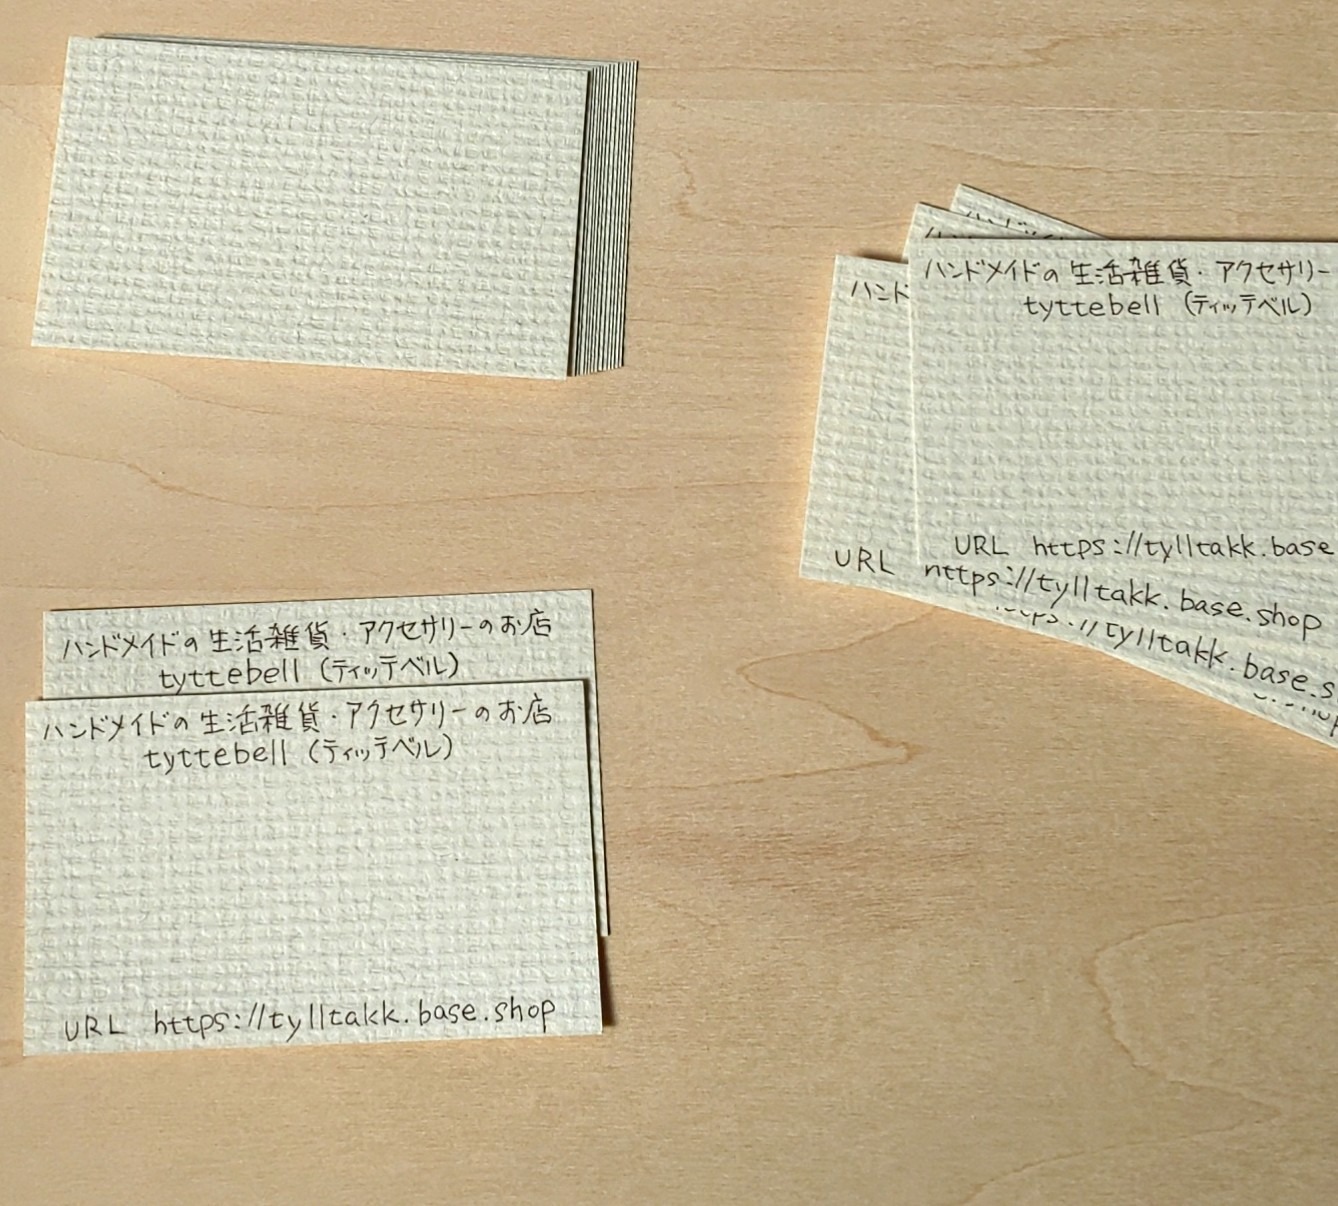 ハンドメイドの生活雑貨・アクセサリー
tyttebell (ティッテベル)
URL https://tylltakk.base
ハンド
URL https://tylltakk.base.shop
https://tylltakk.base.s
ハンドメイドの生活雑貨・アクセサリーのお店
tyttebell (ティッテベル)
ハンドメイドの生活雑貨・アクセサリーのお店
tyttebell (ティッテベル)
URL https://tylltakk.base.shop